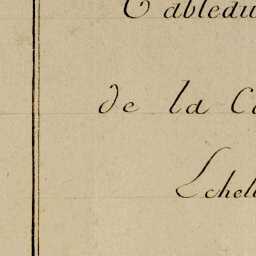 Tabledu
de la C
Echel